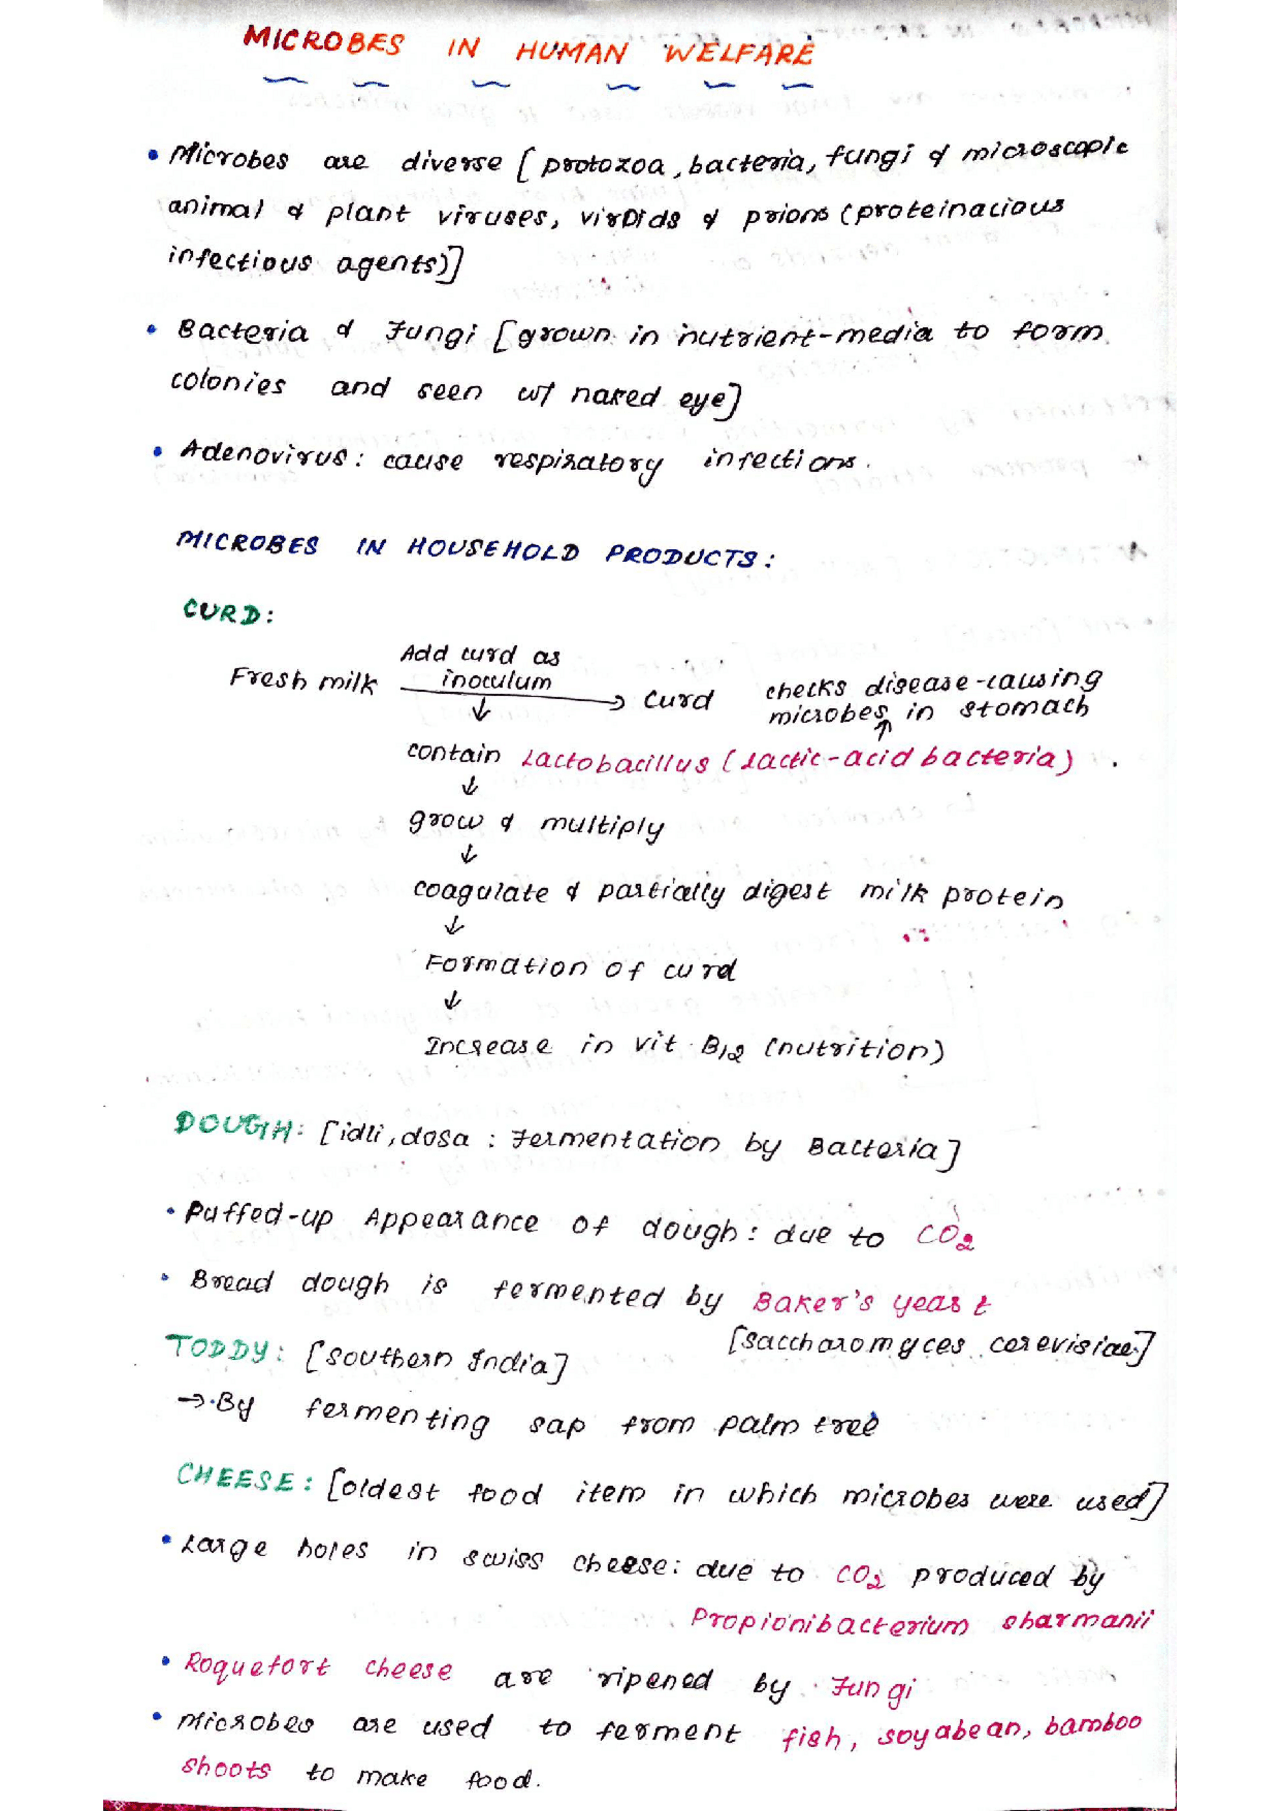 MICROBES IN HUMAN WELFARE
• Microbes are diverse [protozoa, bacteria, fungi & microscopic
animal & plant viruses, viroids & prions (proteinacious
infectious agents)]
• Bacteria & Fungi [grown in nutrient-media to form
colonies and seen w/ naked eye]
• Adenovirus: cause respiratory infections.
MICROBES IN HOUSEHOLD PRODUCTS:
CURD:
Fresh milk Add curd as inoculum → curd
checks disease-causing
microbes in stomach
↓ ↑
contain Lactobacillus (Lactic-acid bacteria)
↓
grow & multiply
↓
coagulate & partially digest milk protein
↓
Formation of curd
↓
Increase in vit B12 (nutrition)
DOUGH: [idli, dosa : Fermentation by Bacteria]
• Puffed-up Appearance of dough: due to CO2
• Bread dough is fermented by Baker's yeast
[saccharomyces cerevisiae]
TODDY: [Southern India]
→ By fermenting sap from palm tree
CHEESE: [oldest food item in which microbes were used]
• Large holes in swiss cheese: due to CO2 produced by
Propionibacterium sharmanii
• Roquefort cheese are ripened by Fungi
• Microbes are used to ferment fish, soyabean, bamboo
shoots to make food.